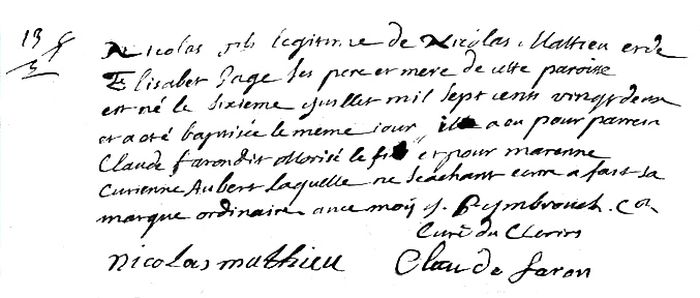 13
Nicolas fils legitime de Nicolas Mathieu et de
Elisabet Page ses pere et mere de cette paroisse
est né le sixieme juillet mil sept cents vingt deux
et a eté baptisée le meme jour, il a eu pour parrein
Claude farondit le fi et pour marenne
Aubert laquelle ne scachant ecrire a fait sa
marque ordinaire avec moy
Curé du
Nicolas mathieu Claude faron